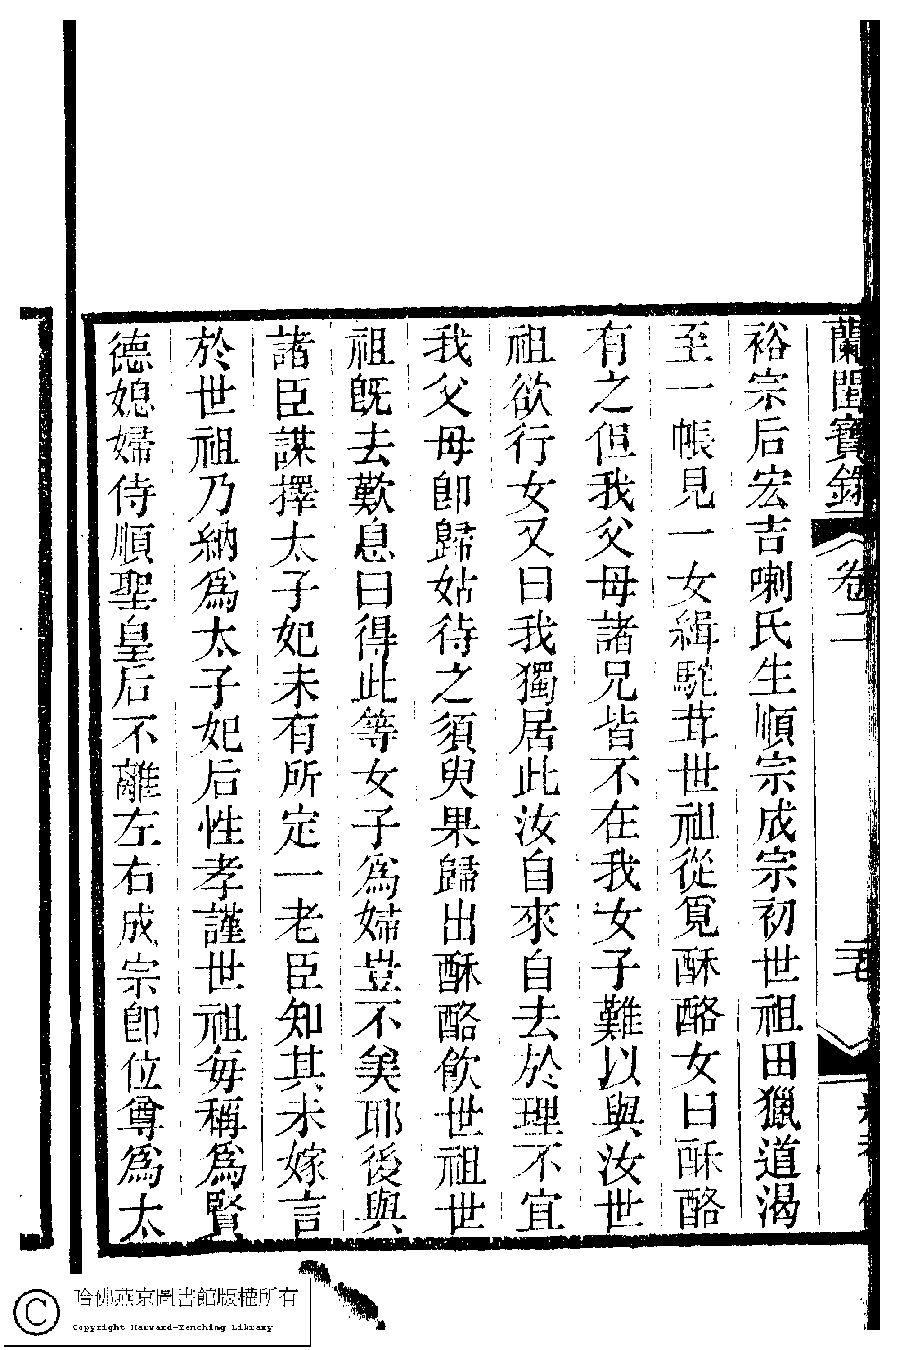 蘭閨寶錄 卷二
裕宗后宏吉喇氏生順宗成宗初世祖田獵道渴
至一帳見一女緝駝茸世祖從覓酥酪女曰酥酪
有之但我父母諸兄皆不在我女子難以與汝世
祖欲行女又曰我獨居此汝自來自去於理不宜
我父母卽歸姑待之須臾果歸出酥酪飮世祖世
祖旣去歎息曰得此等女子爲婦豈不美耶後與
諸臣謀擇太子妃未有所定一老臣知其未嫁言
於世祖乃納爲太子妃后性孝謹世祖每稱爲賢
德媳婦侍順聖皇后不離左右成宗卽位尊爲太
哈佛燕京圖書館版權所有
Copyright Harvard-Yenching Library